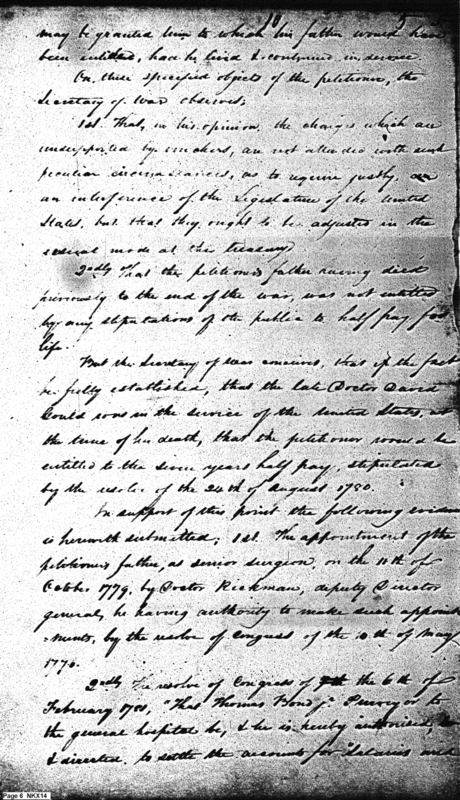 10 5
may be granted him to which his father would have
been entitled, had he lived & continued in service
On these specified objects of the petitioner, the
Secretary of War observes,
1st. That, in his opinion, the charges which are
unsupported by vouchers, are not attended with such
peculiar circumstances, as to require justly,
an interference of the Legislature of the United
States, but that they ought to be adjusted in the
usual mode at the treasury
2ndly That the petitioners father having died
previously to the end of the war, was not entitled
by any stipulations of the public to half pay for
life.
But the Secretary of War conceives, that if the fact
be fully established, that the late Doctor David
Gould was in the service of the United States, at
the time of his death, that the petitioner would be
entitled to the seven years half pay, stipulated
by the resolve of the 24th of August 1780.
In support of this point the following eviden
is herewith submitted; 1st. The appointment of the
petitioners father, as senior surgeon, on the 11th of
October 1779, by Doctor Rickman, deputy Director
general, he having authority to make such appoint
-ments, by the resolve of Congress of the 10th of May
1776.
2ndly The resolve of Congress of the 6th of
February 1781, "That Thomas Bond jr. Purveyor to
the general hospital be, & he is hereby authorised,
& directed, to settle the accounts for Salaries and
Page 6 NKX14